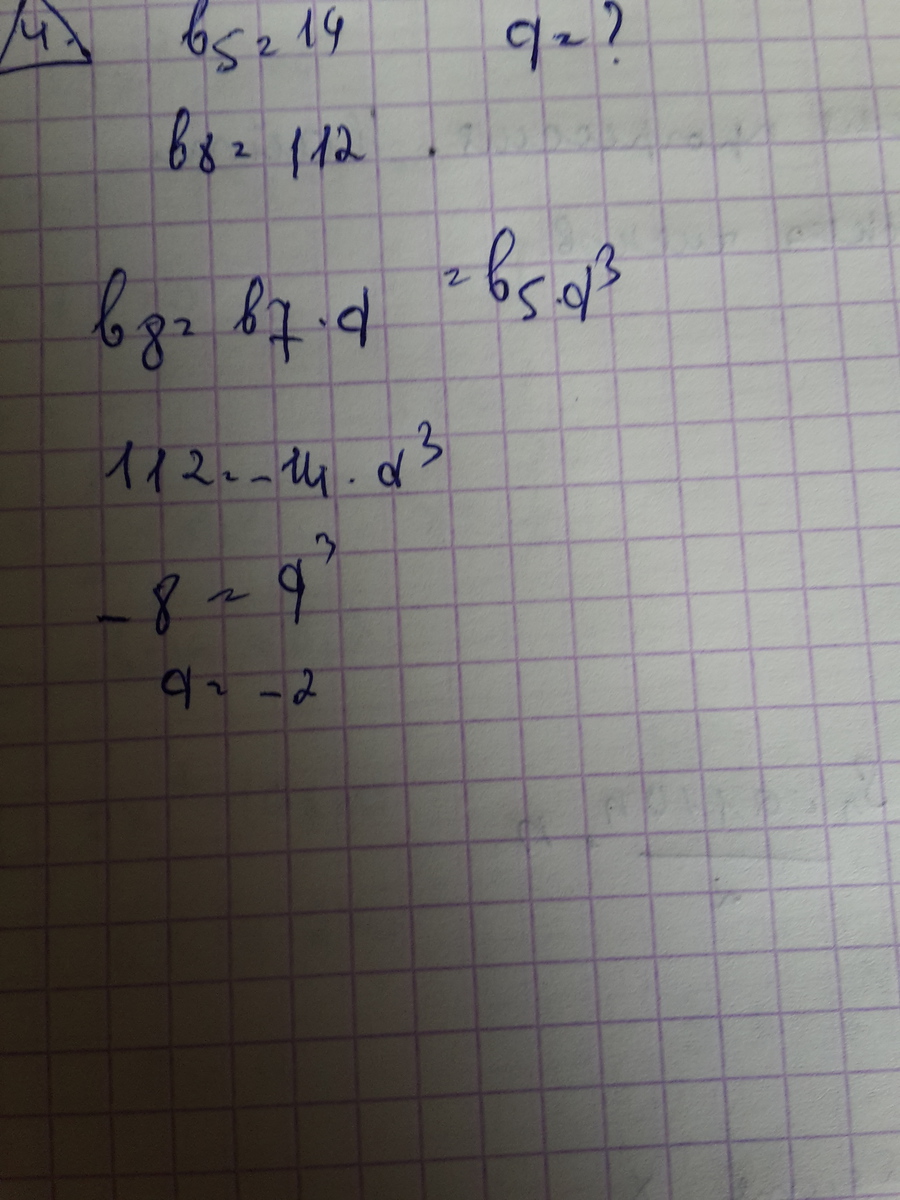 4. b5 = 14 q = ?
b8 = 112
b8 = b7 · q = b5 · q³
112 = -14 · q³
-8 = q³
q = -2